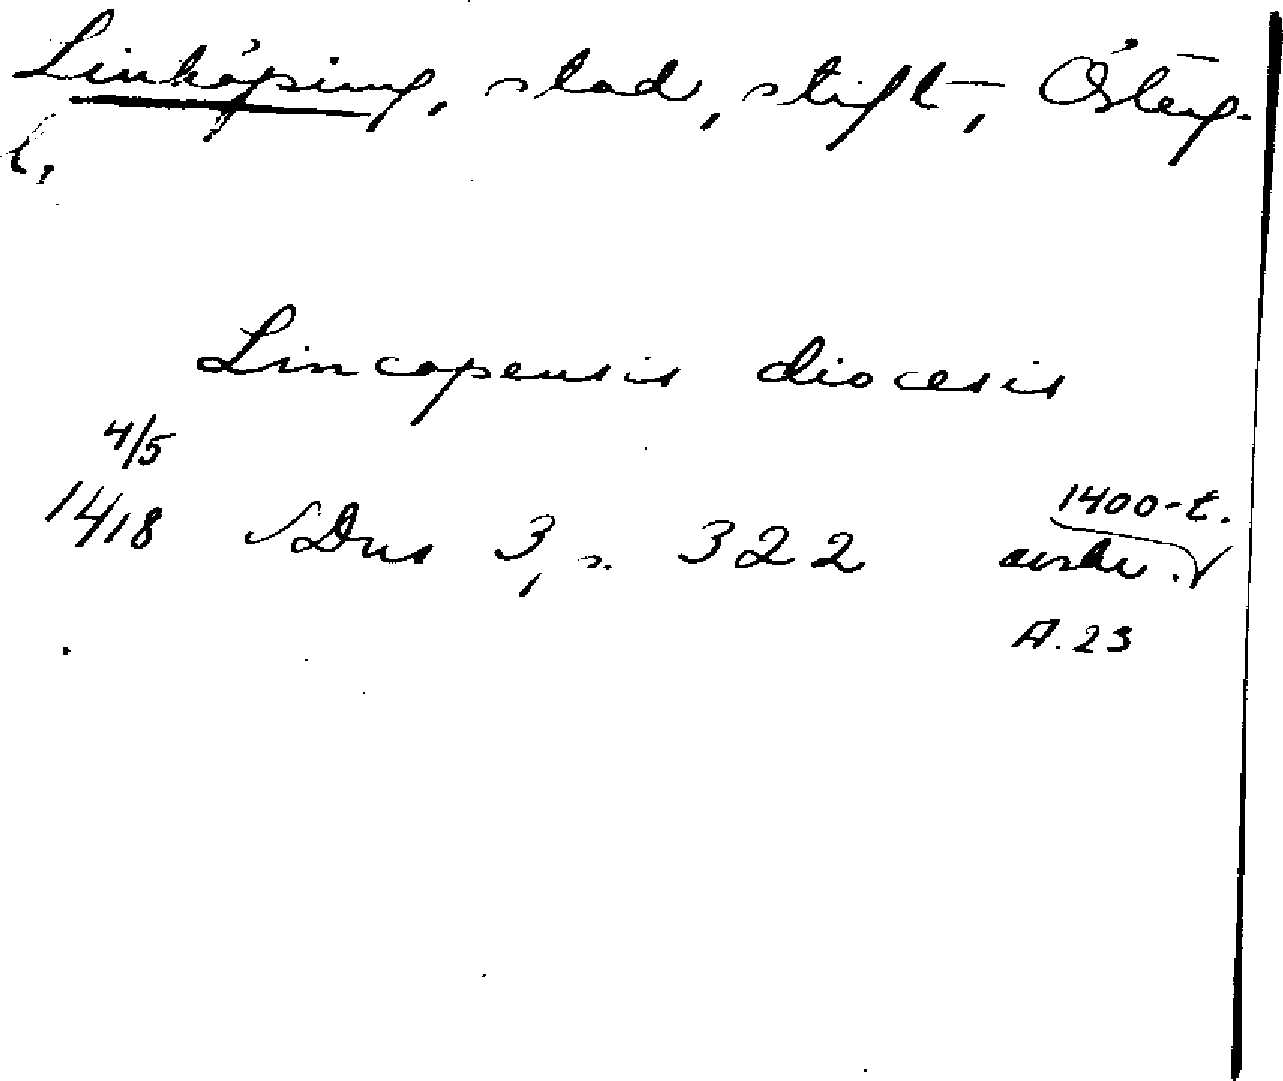 Linköping, stad, stift, Österg.
l.
Lincopensis diocesis
4/5
1418 SDns 3, s. 322 1400-t.
avskr.
A. 23